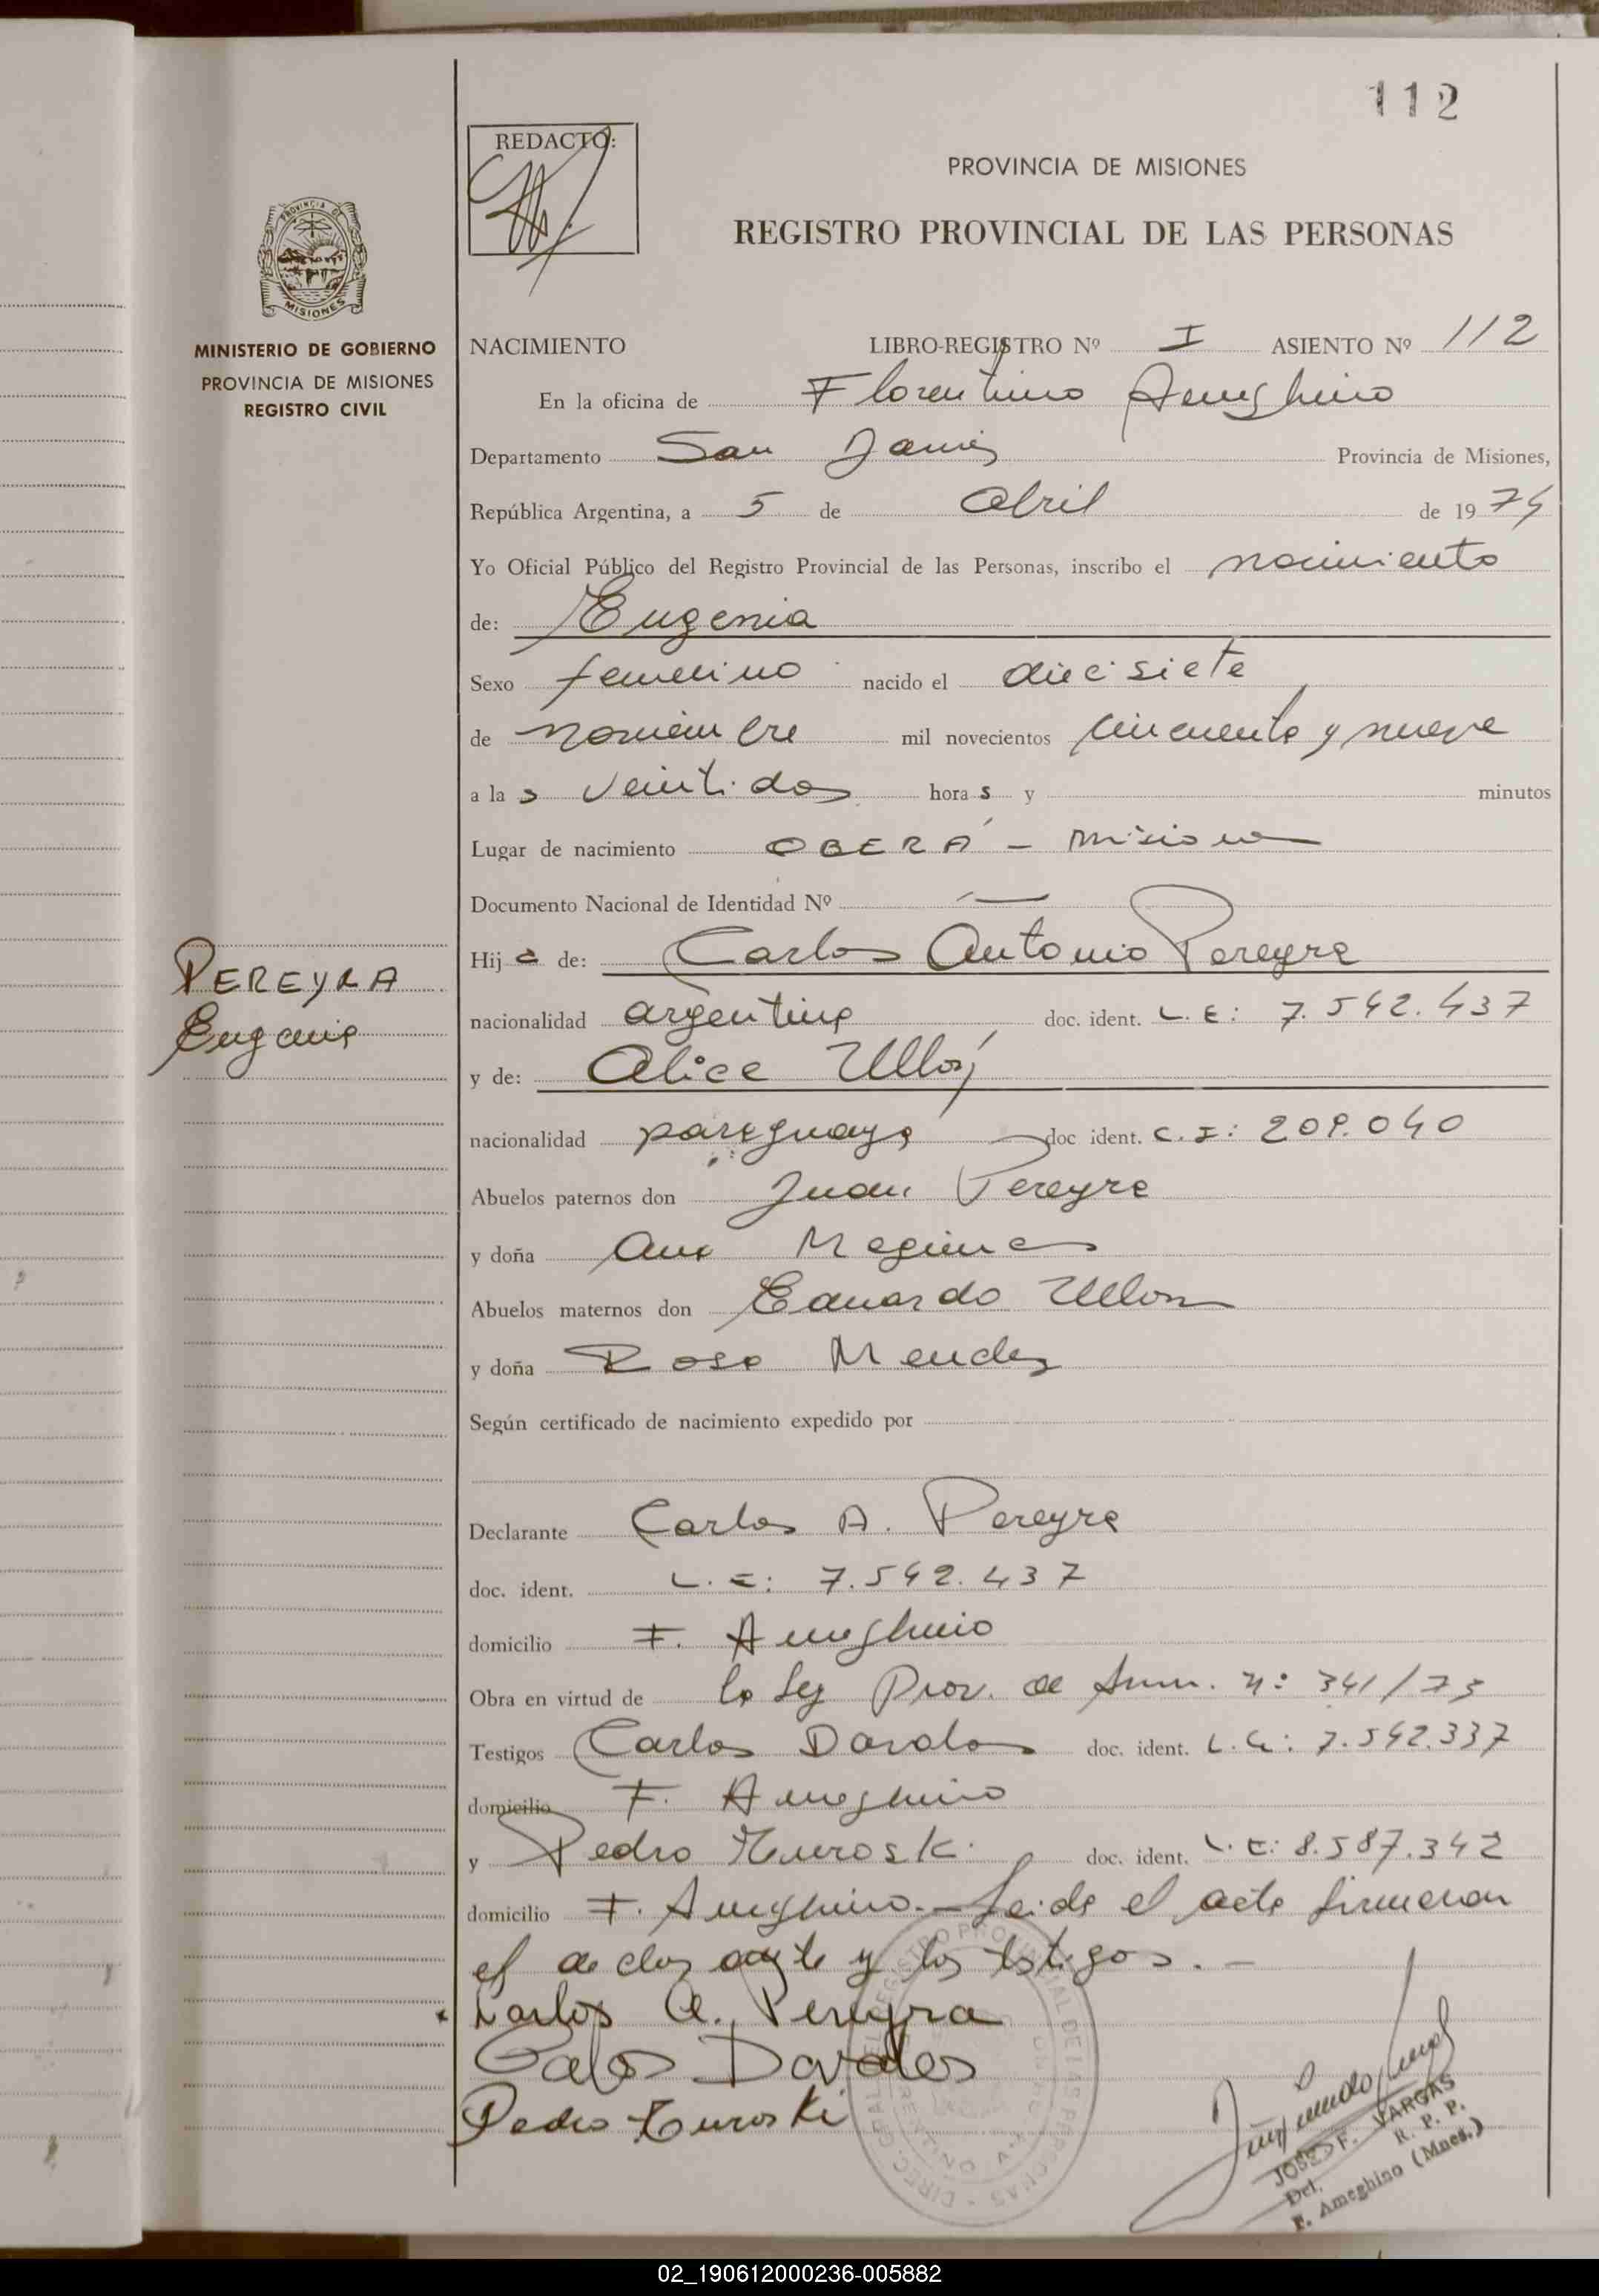 112
REDACTO:
PROVINCIA DE MISIONES
REGISTRO PROVINCIAL DE LAS PERSONAS
PROVINCIA DE
MISIONES
MINISTERIO DE GOBIERNO
PROVINCIA DE MISIONES
REGISTRO CIVIL
NACIMIENTO LIBRO-REGISTRO Nº I ASIENTO Nº 112
En la oficina de Florentino Ameghino
Departamento San Javier Provincia de Misiones,
República Argentina, a 5 de abril de 1974
Yo Oficial Público del Registro Provincial de las Personas, inscribo el nacimiento
de: Eugenia
Sexo femenino nacido el diecisiete
de noviembre mil novecientos cincuenta y nueve
a las veintidos horas y minutos
Lugar de nacimiento OBERÁ - Misiones
Documento Nacional de Identidad Nº —
Hija de: Carlos Antonio Pereyra
PEREYRA
Eugenia
nacionalidad argentina doc. ident. L.E: 7.542.437
y de: Alice Ullón
nacionalidad paraguaya doc ident. C.I: 209.040
Abuelos paternos don Juan Pereyra
y doña Ana
Abuelos maternos don Eduardo Ullon
y doña Rosa Mendez
Según certificado de nacimiento expedido por
Declarante Carlos A. Pereyra
doc. ident. L.E: 7.542.437
domicilio F. Ameghino
Obra en virtud de la Ley Prov. de Amn. Nº 341/73
Testigos Carlos Davalos doc. ident. L.E: 7.542.337
domicilio F. Ameghino
y Pedro doc. ident. L.E: 8.587.342
domicilio F. Ameghino.- Leida el acta firmaron
el declarante y los testigos.-
Carlos A. Pereyra
Carlos Davalos
Pedro
JOSE F. VARGAS
Del. R. P. P.
F. Ameghino (Mnes.)
02_190612000236-005882